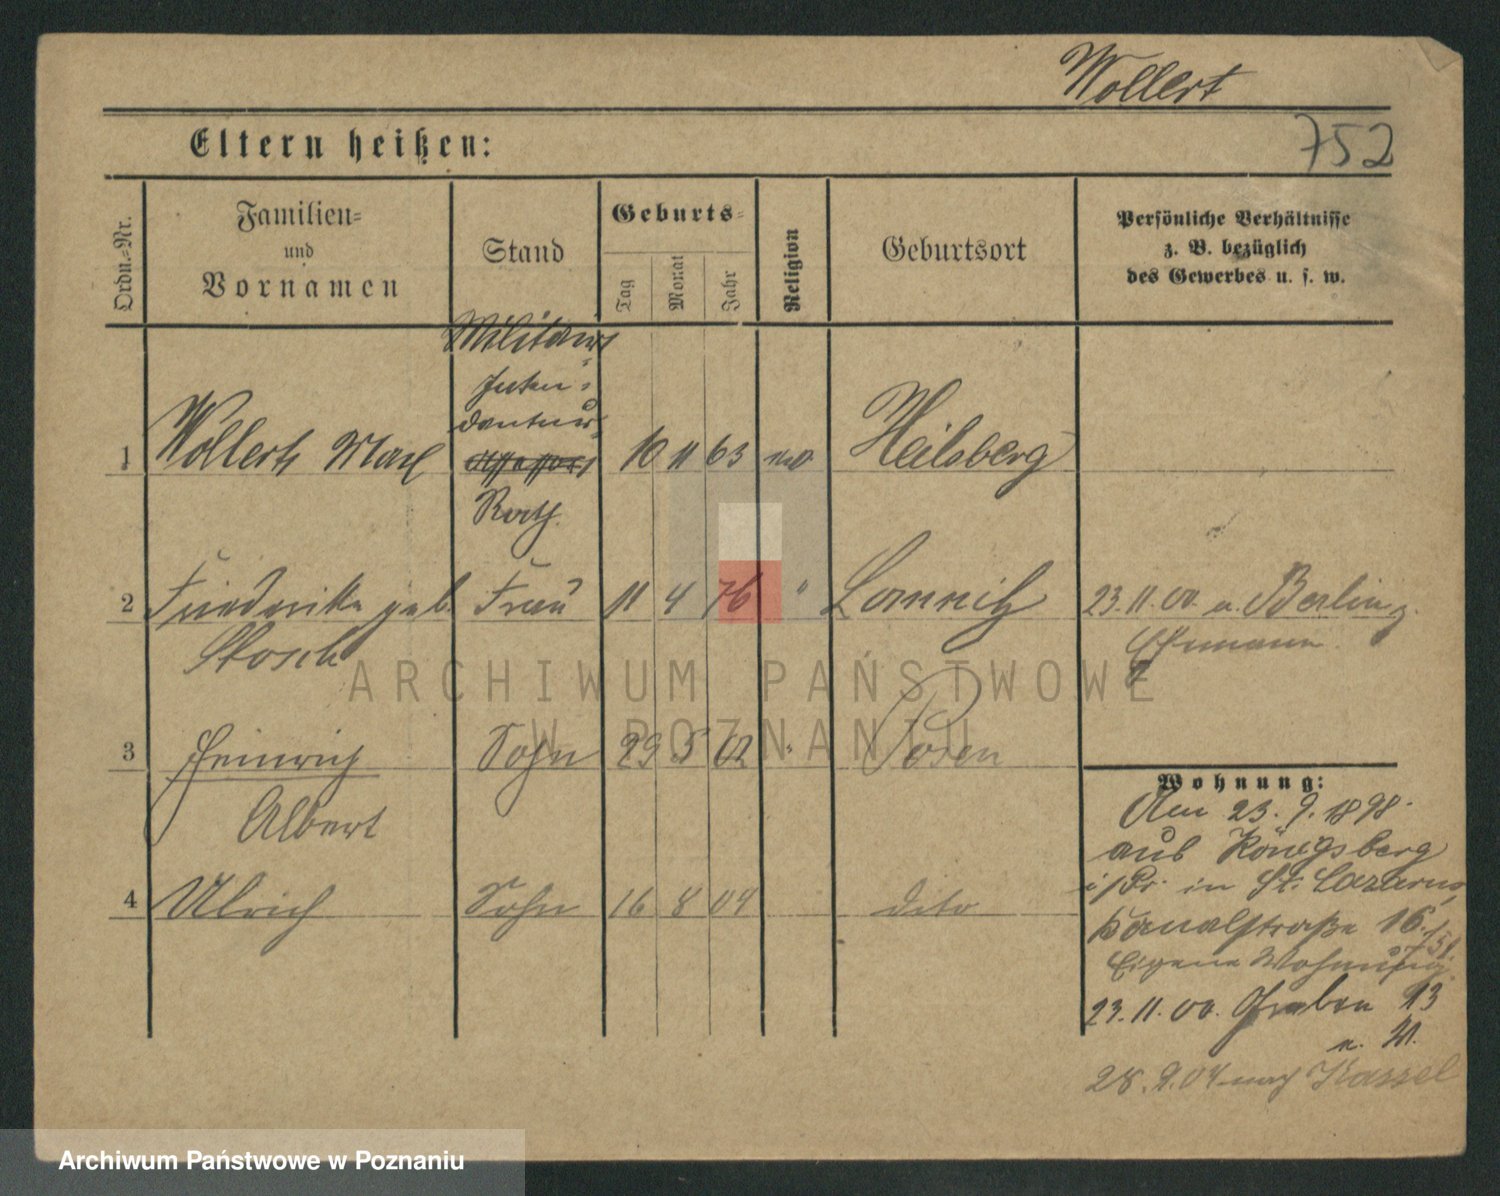 Wollert
752
Eltern heißen:
Ordn.-Nr.
Familien-
und
Vornamen
Stand
Geburts-
Tag
Monat
Jahr
Religion
Geburtsort
Persönliche Verhältnisse
z. B. bezüglich
des Gewerbes u. s. w.
Militär-
Inten-
dantur-
1 Wollert, Max Assessor 10 11 63 ev. Heilsberg
Rath
2 Friederike geb. Frau 11 4 76 " Lomnitz 23.11.00 a. Berlin z.
Stosch Ehemann
3 Heinrich Sohn 29 5 02 " Posen
Albert
4 Ulrich Sohn 16 8 04 dito
Wohnung:
Am 23.9.1898
aus Königsberg
i/Pr. in St. Lazarus,
Kanalstraße 16.
Eigene Wohnung.
23.11.00. Graben 13
28.9.04 nach Kassel
ARCHIWUM PAŃSTWOWE
W POZNANIU
Archiwum Państwowe w Poznaniu